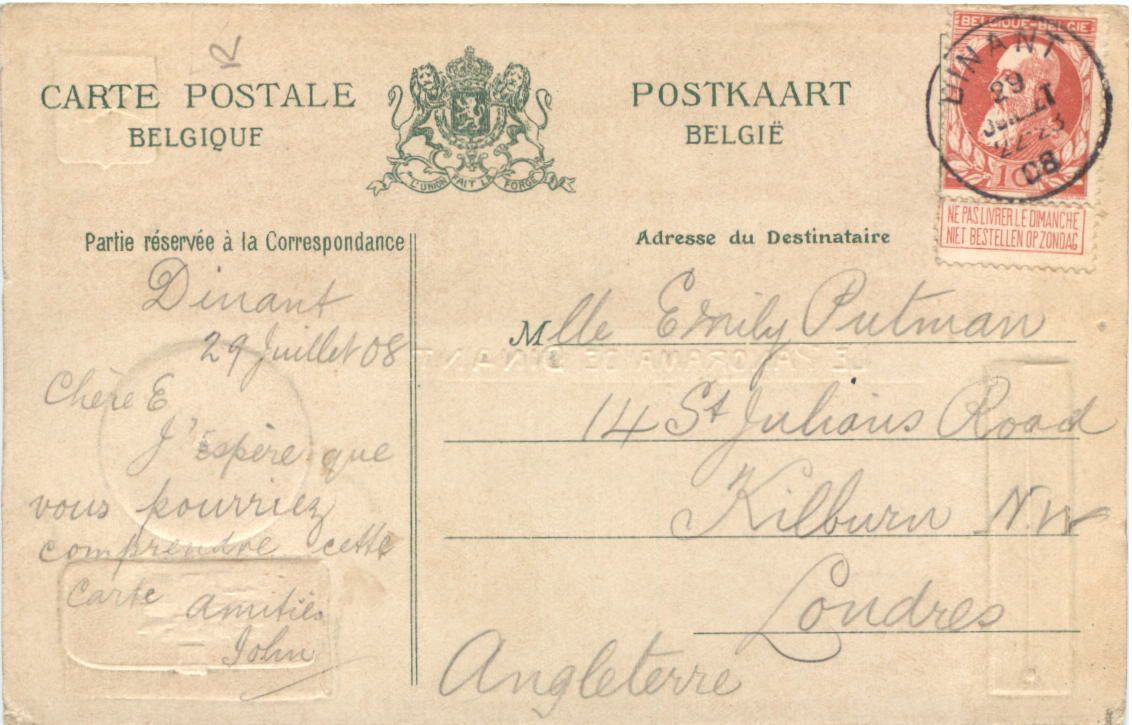 CARTE POSTALE
BELGIQUE
POSTKAART
BELGIË
L'UNION FAIT LA FORCE
BELGIQUE-BELGIE
DINANT
29
JUILLET
22-23
08
10
NE PAS LIVRER LE DIMANCHE
NIET BESTELLEN OP ZONDAG
Partie réservée à la Correspondance
Dinant
29 Juillet 08
Chère E
J'espère que
vous pourriez
comprendre cette
carte
Amitiés
John
Adresse du Destinataire
Mlle Emily Putman
14 St Julians Road
Kilburn N.W
Londres
Angleterre
LE PANORAMA DE DINANT